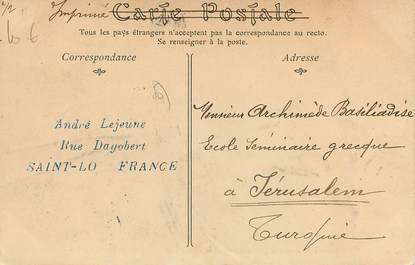 Imprimé
Carte Postale
Tous les pays étrangers n'acceptent pas la correspondance au recto.
Se renseigner à la poste.
Correspondance
Adresse
André Lejeune
Rue Dagobert
SAINT-LO FRANCE
Monsieur Archimède Basiliadise
Ecole Séminaire grecque
à Jérusalem
Turquie